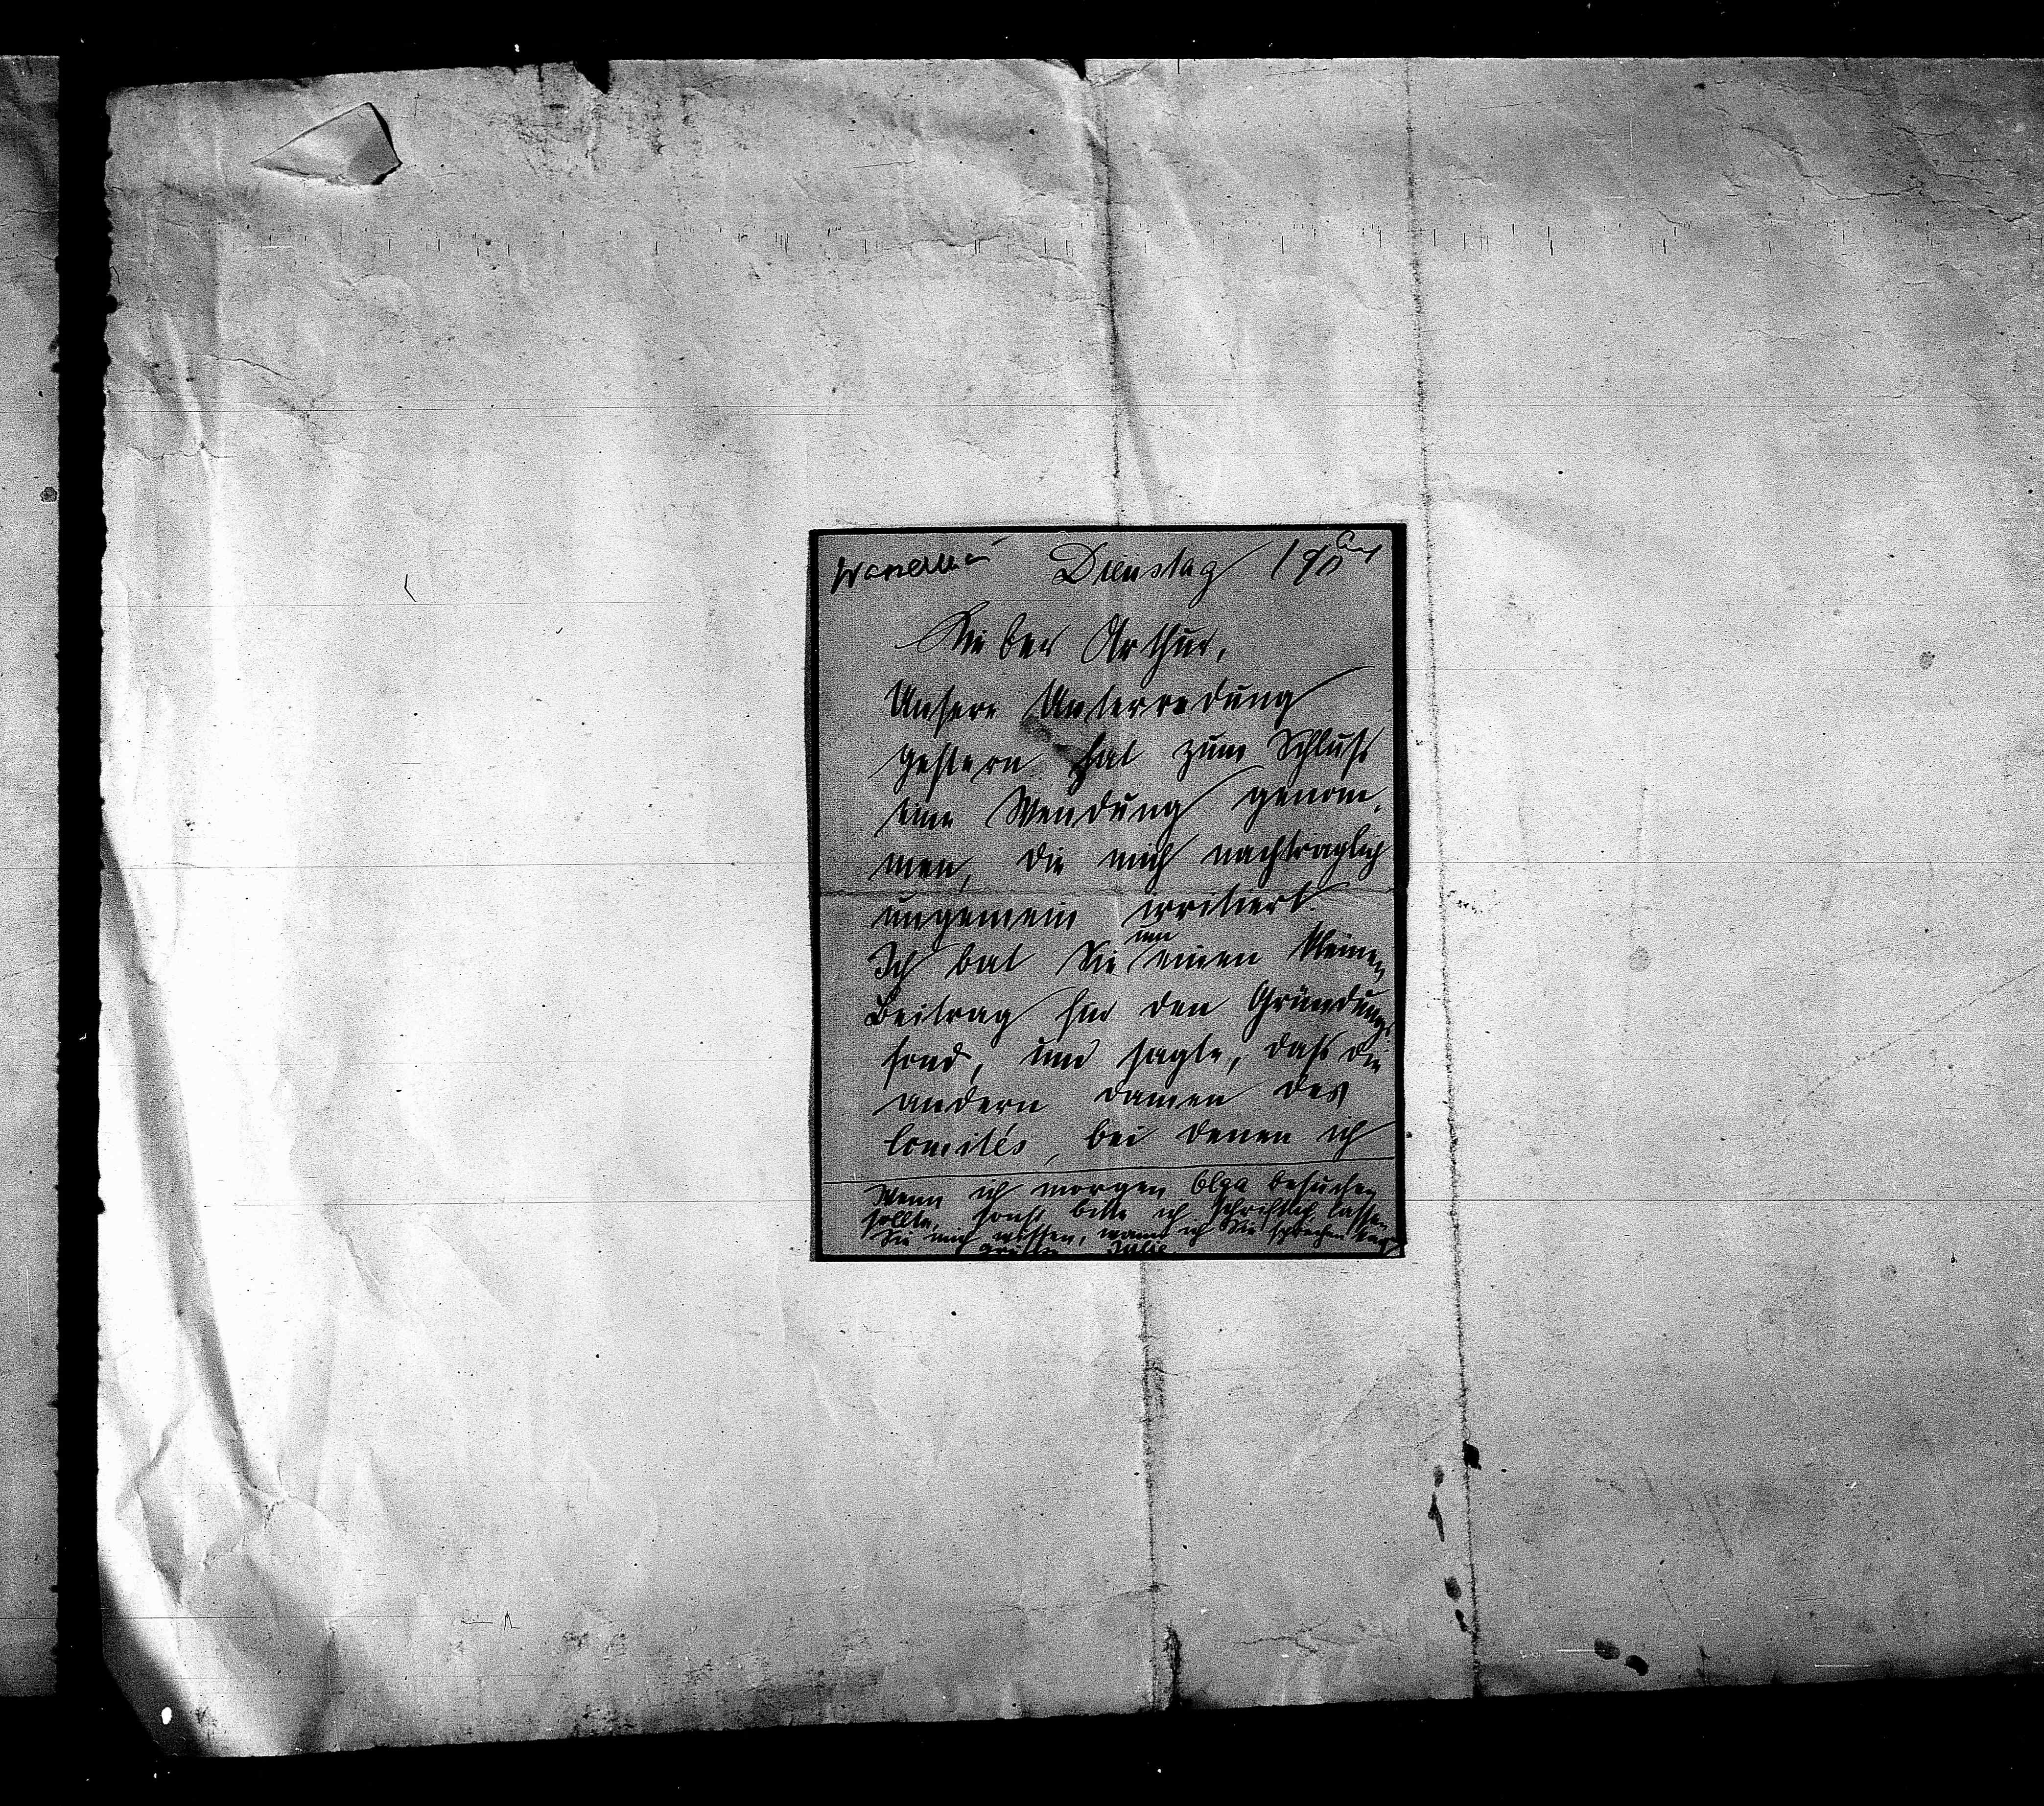 Dienstag
Lieber Arthur,
Unsere Unterredung
gestern hat zum Schluß
eine Wendung genom-
men, die mich nachträglich
ungemein irritiert.
Ich bat Sie um einen kleinen
Beitrag für den Gründungs
fond, und sagte, daß die
andern Damen des
Comités, bei denen ich
Wenn ich morgen Olga besuchen
sollte, sonst bitte ich schriftlich lassen
Sie mich wissen, wann ich Sie sprechen kann
Julie